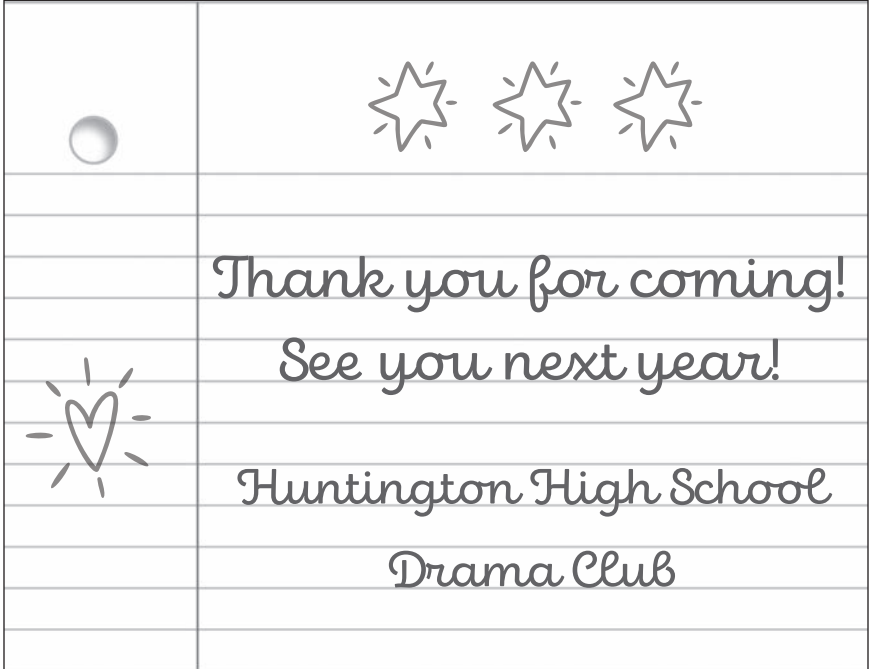 Thank you for coming!
See you next year!
Huntington High School
Drama Club